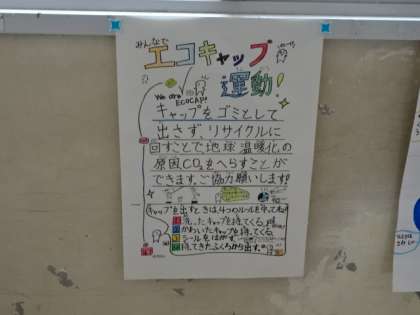 みんなで
エコキャップ
運動!
We are
ECOCAP
キャップをゴミとして
出さず、リサイクルに
回すことで地球温暖化の
原因CO₂をへらすことが
できます。ご協力願いします!
キャップを出すときは、4つのルールを守ってね!
1 洗ったキャップを持ってくる。
2 かわいたキャップを持ってくる。
3 シールをはがす
4 持ってきたふくろから出す。